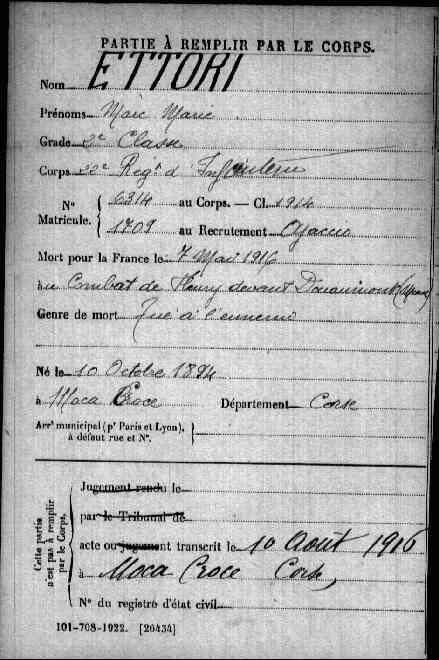 PARTIE À REMPLIR PAR LE CORPS.
Nom ETTORI
Prénoms Marc Marie
Grade 2e Classe
Corps 22e Regt d' Infanterie
N° Matricule. { 6314 au Corps. — Cl. 1914
1709 au Recrutement Ajaccio
Mort pour la France le 7 Mai 1916
au Combat de Fleury devant Douaumont
Genre de mort Tué à l'ennemi
Né le 10 Octobre 1894
à Moca Croce Département Corse
Arrt municipal (pr Paris et Lyon), à défaut rue et N°. {
Cette partie n'est pas à remplir par le Corps.
Jugement rendu le
par le Tribunal de
acte ou jugement transcrit le 10 Août 1916
à Moca Croce Corse,
N° du registre d'état civil
101-708-1922. [26434]